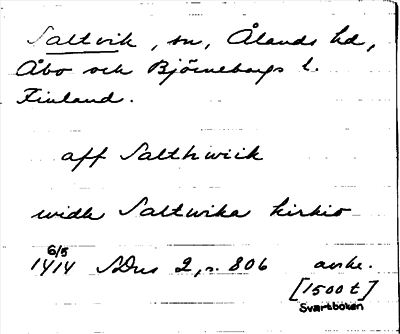 Saltvik, sn, Ålands hd,
Åbo och Björneborgs l.
Finland.
aff Salthwiik
widh Saltwika kirkio
6/5
1414 SDns 2, s. 806 avskr.
[1500 t]
Svartboken